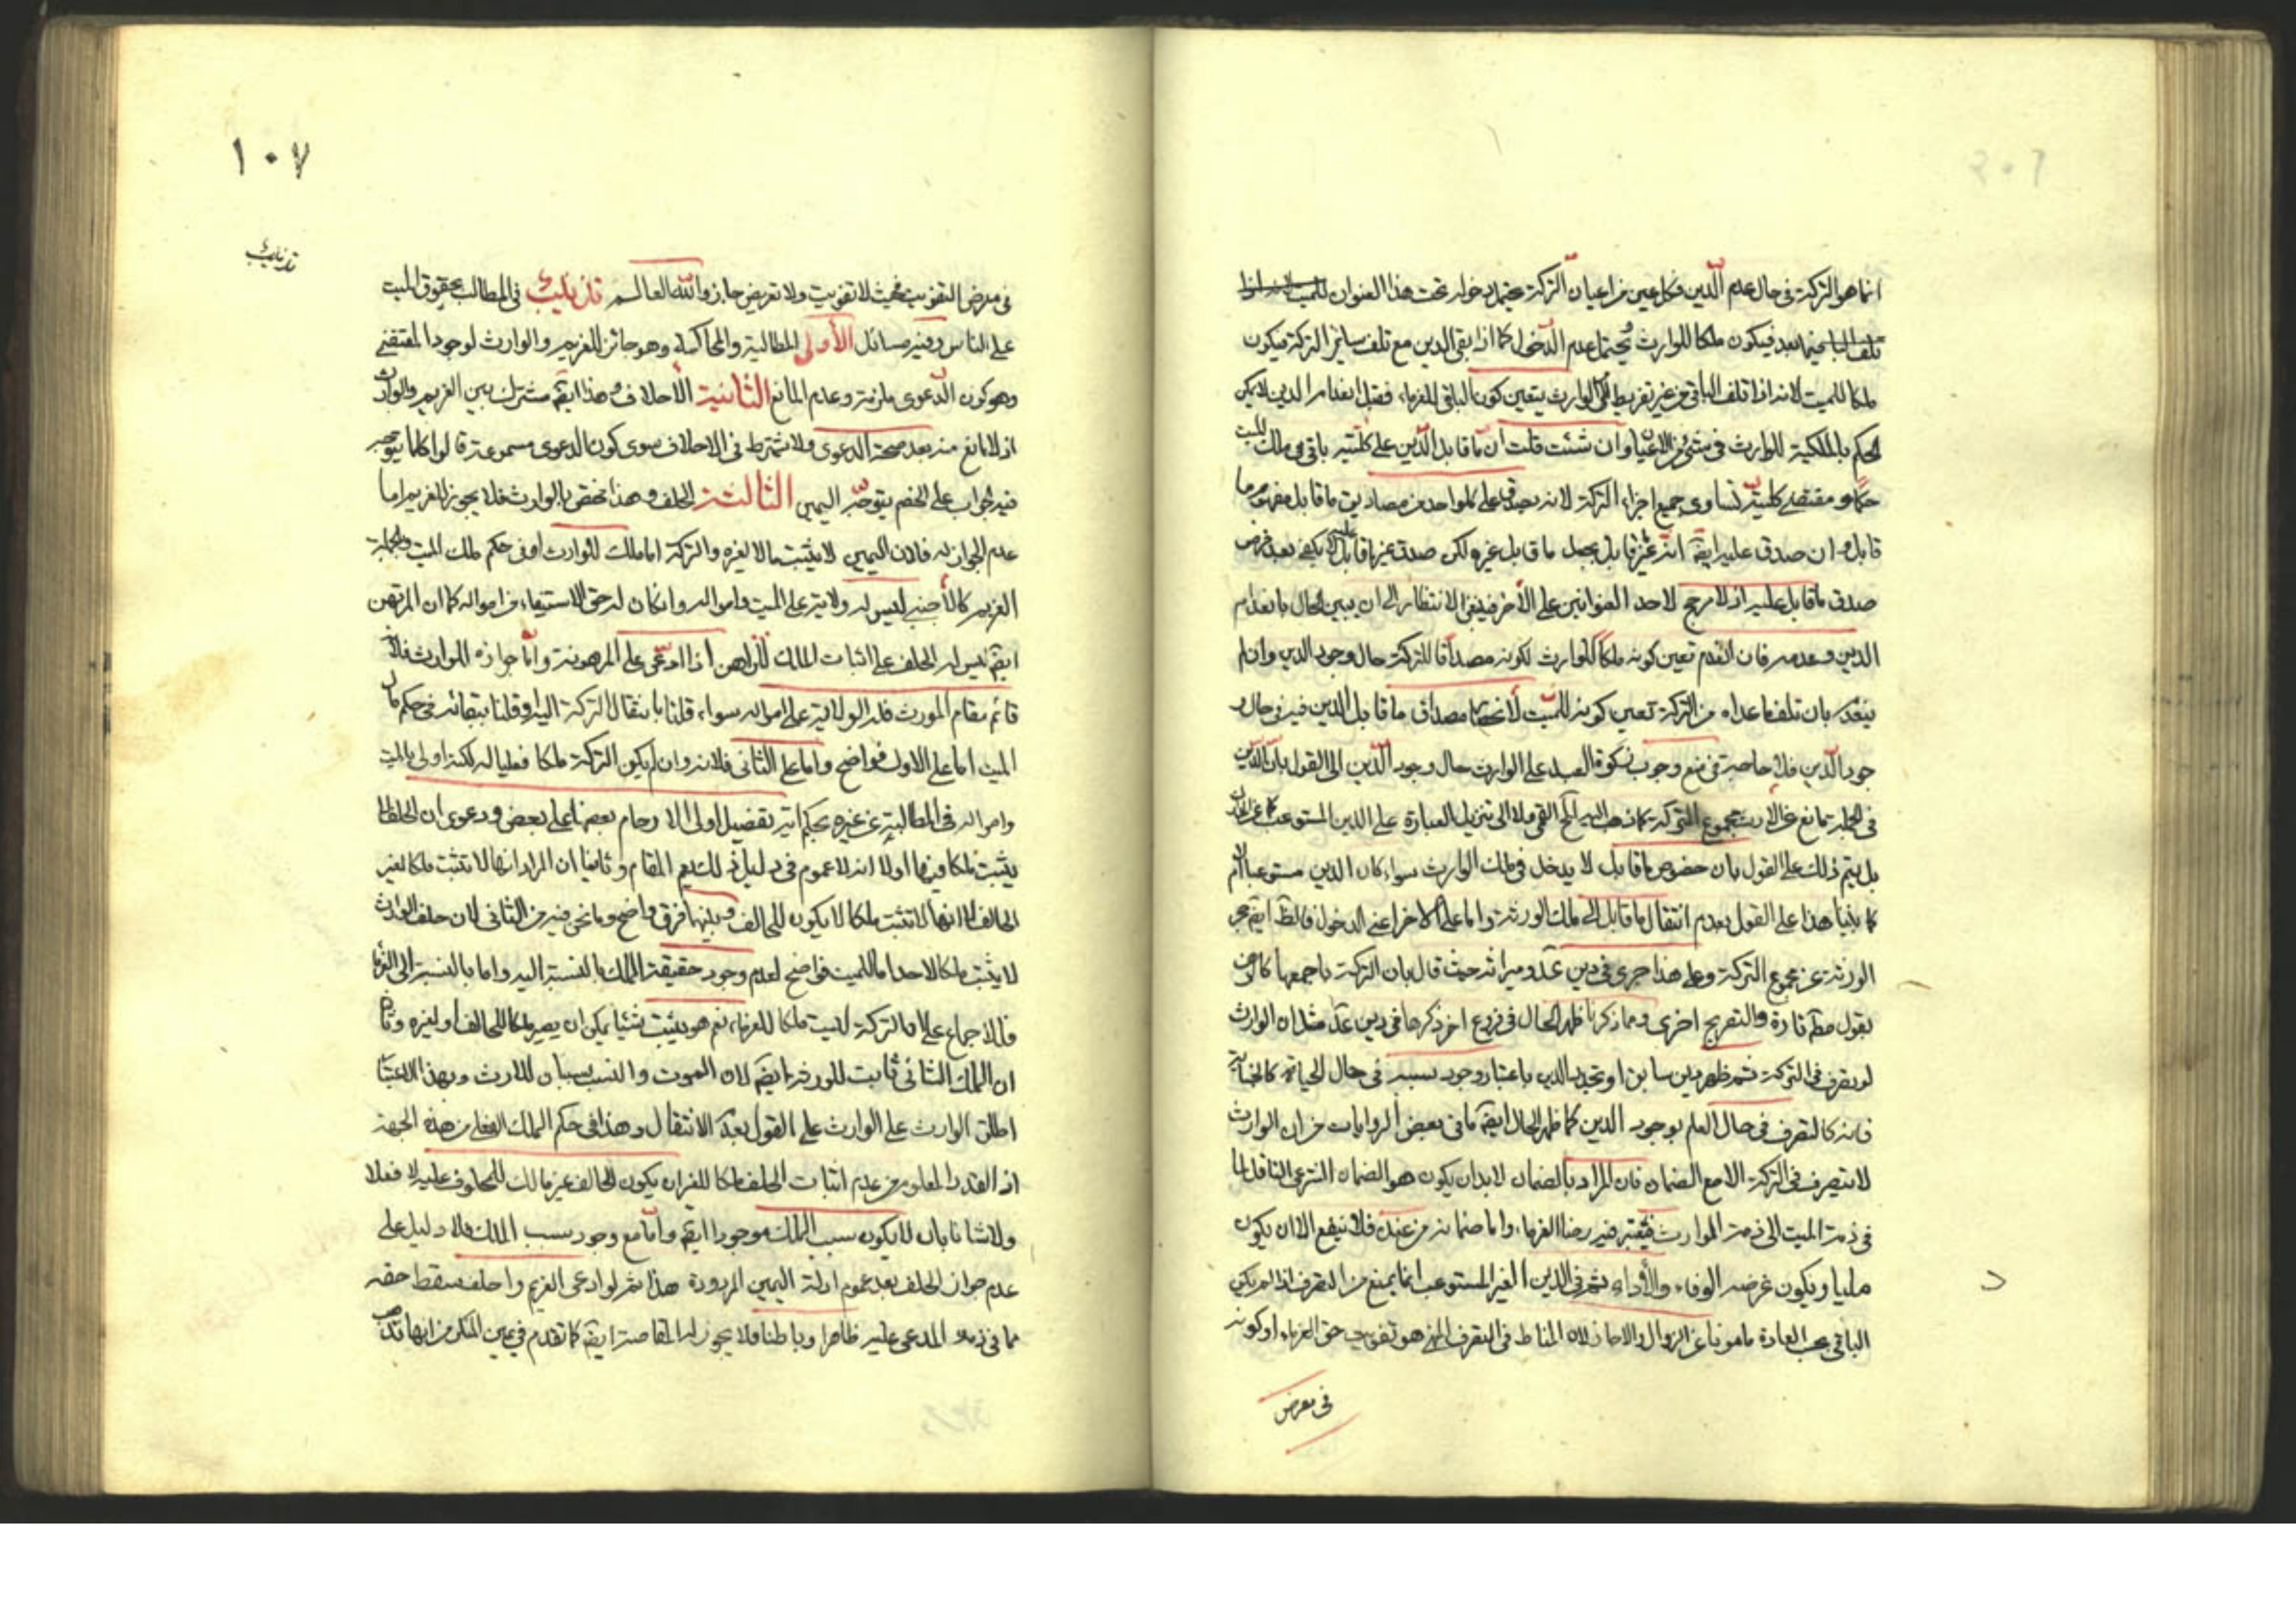 انما هو التركة في حال عدم الدين فكل عين من اعيان التركة يحتمل دخوله تحت هذا العنوان
فيما بعد فيكون ملكا للوارث ويحتمل عدم الدخول كما اذا بقى الدين مع تلف سائر التركة فيكون
ملكا للميت لانه اذا تلف الباقي من غير تفريط الوارث يتعين كون الباقي للغرماء فقبل انعدام الدين لا يمكن
الحكم بالملكية للوارث في شئ من الاعيان وان شئت قلت ان ما قابل الدين على كليته باق في ملك الميت
حكما ومقتضى كليته تساوى جميع اجزاء التركة لانه يصدق على كل واحد من مصاديق ما قابل مفهوم ما
قابل وان صدق عليه ايضا انه غير قابل يجعل ما قابل غيره ولكن صدق غير ما قابل عليه لا يكفي بعد فرض
صدق ما قابل عليه اذ لا مرجح لاحد العنوانين على الآخر فينبغي الانتظار الى ان يبين الحال بانعدام
الدين وعدمه فان انعدم تعين كونه ملكا للوارث لكونه مصداقا للتركة حال وجود الدين وان لم
ينعدم بان تلف ما عداه من التركة تعين كونه للميت لانحصار مصداق ما قابل الدين فيه في حال و
جود الدين فلا حاجة في منع وجوب زكوة العبد على الوارث حال وجود الدين الى القول بان الدين
في الجملة مانع عن الارث بمجموع التركة كما ذهب اليه المحقق القمي ولا الى تنزيل العبارة على الدين المستوعب
بل يتم ذلك على القول بان خصوص ما قابل لا يدخل في ملك الوارث سواء كان الدين مستوعبا ام لا
كما بينا هذا على القول بعدم انتقال ما قابل الى ملك الورثة واما على الآخر اعني الدخول فالظ ايضا حجر
الورثة عن مجموع التركة وعلى هذا جرى في دين عد وميراثه حيث قال بان التركة باجمعها كالرهن
بقول مط تارة والتصريح اخرى ومما ذكرنا ظهر الحال في فروع اخر ذكرها في دين عد مثل ان الوارث
لو تصرف في التركة ثم ظهر دين سابق او تجدد الدين باعتبار وجود سببه في حال الحياة كالجناية
فانه كالتصرف في حال العلم بوجود الدين كما ظهر الحال ايضا ما في بعض الروايات من ان الوارث
لا يتصرف في التركة الا مع الضمان فان المراد بالضمان لا بد ان يكون هو الضمان الشرعي الناقل لما
في ذمة الميت الى ذمة الوارث فيعتبر فيه رضا الغرماء واما ضمانه من عنده فلا ينفع الا ان يكون
مليا ويكون غرضه الوفاء والاداء ثم في الدين الغير المستوعب انما يمنع من التصرف اذا لم يكن
الباقي بحسب العادة مامونا عن الزوال والا جاز لان المناط في التصرف المنهي هو تفويت حق الغرماء او كونه
في معرض
١٠٧
تذنيب
في معرض التفويت فحيث لا تفويت ولا تعريض جاز والله العالم تذنيب في المطالب بحقوق الميت
على الناس وفيه مسائل الأولى المطالبة والمحاكمة وهو جائز للغريم والوارث لوجود المقتضي
وهو كون الدعوى ملزمة وعدم المانع الثانية الاحلاف وهذا ايضا مشترك بين الغريم والوارث
اذ لا مانع منه بعد صحة الدعوى ولا يشترط في الاحلاف سوى كون الدعوى مسموعة قالوا كلما يتوجه
فيه الجواب على الخصم يتوجه اليمين الثالثة الحلف وهذا مختص بالوارث فلا يجوز للغريم اما
عدم الجواز له فلان اليمين لا يثبت مالا لغيره والتركة اما ملك للوارث او في حكم ملك الميت وبالجملة
الغريم كالأجنبي ليس له ولاية على الميت وامواله وان كان له حق الاستيفاء من امواله كما ان المرتهن
ايضا ليس له الحلف على اثبات الملك للراهن اذا ادعى على المرهونة واما جوازه للوارث فلانه
قائم مقام المورث فله الولاية على امواله سواء قلنا بانتقال التركة اليه او قلنا ببقائه في حكم مال
الميت اما على الاول فواضح واما على الثاني فلانه وان لم يكن التركة ملكا فعليا له لكنه اولى بالميت
وامواله في المطالبة عن غيره بحكم اية تفضيل اولى الارحام بعضها على بعض ودعوى ان الحلف لا
يثبت ملكا فيها اولا انه لا عموم في دليل ذلك يعم المقام وثانيا ان المراد انها لا تثبت ملكا لغير
الحالف لا انها لا تثبت ملكا لا يكون للحالف وبينهما فرق واضح وما نحن فيه من الثاني لان حلف الوارث
لا يثبت ملكا لاحد اما للميت فواضح لعدم وجود حقيقة الملك بالنسبة اليه واما بالنسبة الى الغرماء
فللاجماع على ان التركة ليست ملكا للغرماء نعم هو يثبت شيئا يمكن ان يصير ملكا للحالف او لغيره وثالثا
ان الملك الثاني ثابت للورثة ايضا لان الموت والنسب سببان للارث وبهذا الاعتبار
اطلق الوارث على الوارث على القول بعدم الانتقال وهذا في حكم الملك الفعلي من هذه الجهة
اذ القدر المعلوم من عدم اثبات الحلف ملكا للغير ان يكون الحالف غير مالك للمحلوف عليه لا فعلا
ولا شانا بان لا يكون سبب الملك موجودا ايضا واما مع وجود سبب الملك فلا دليل على
عدم جواز الحلف بعد عموم ادلة اليمين المردودة هذا ثم لو ادعى الغريم واحلف سقط حقه
مما في ذمة المدعى عليه ظاهرا وباطنا ولا يجوز له المقاصة ايضا كما تقدم في يمين المنكر من انها تذهب